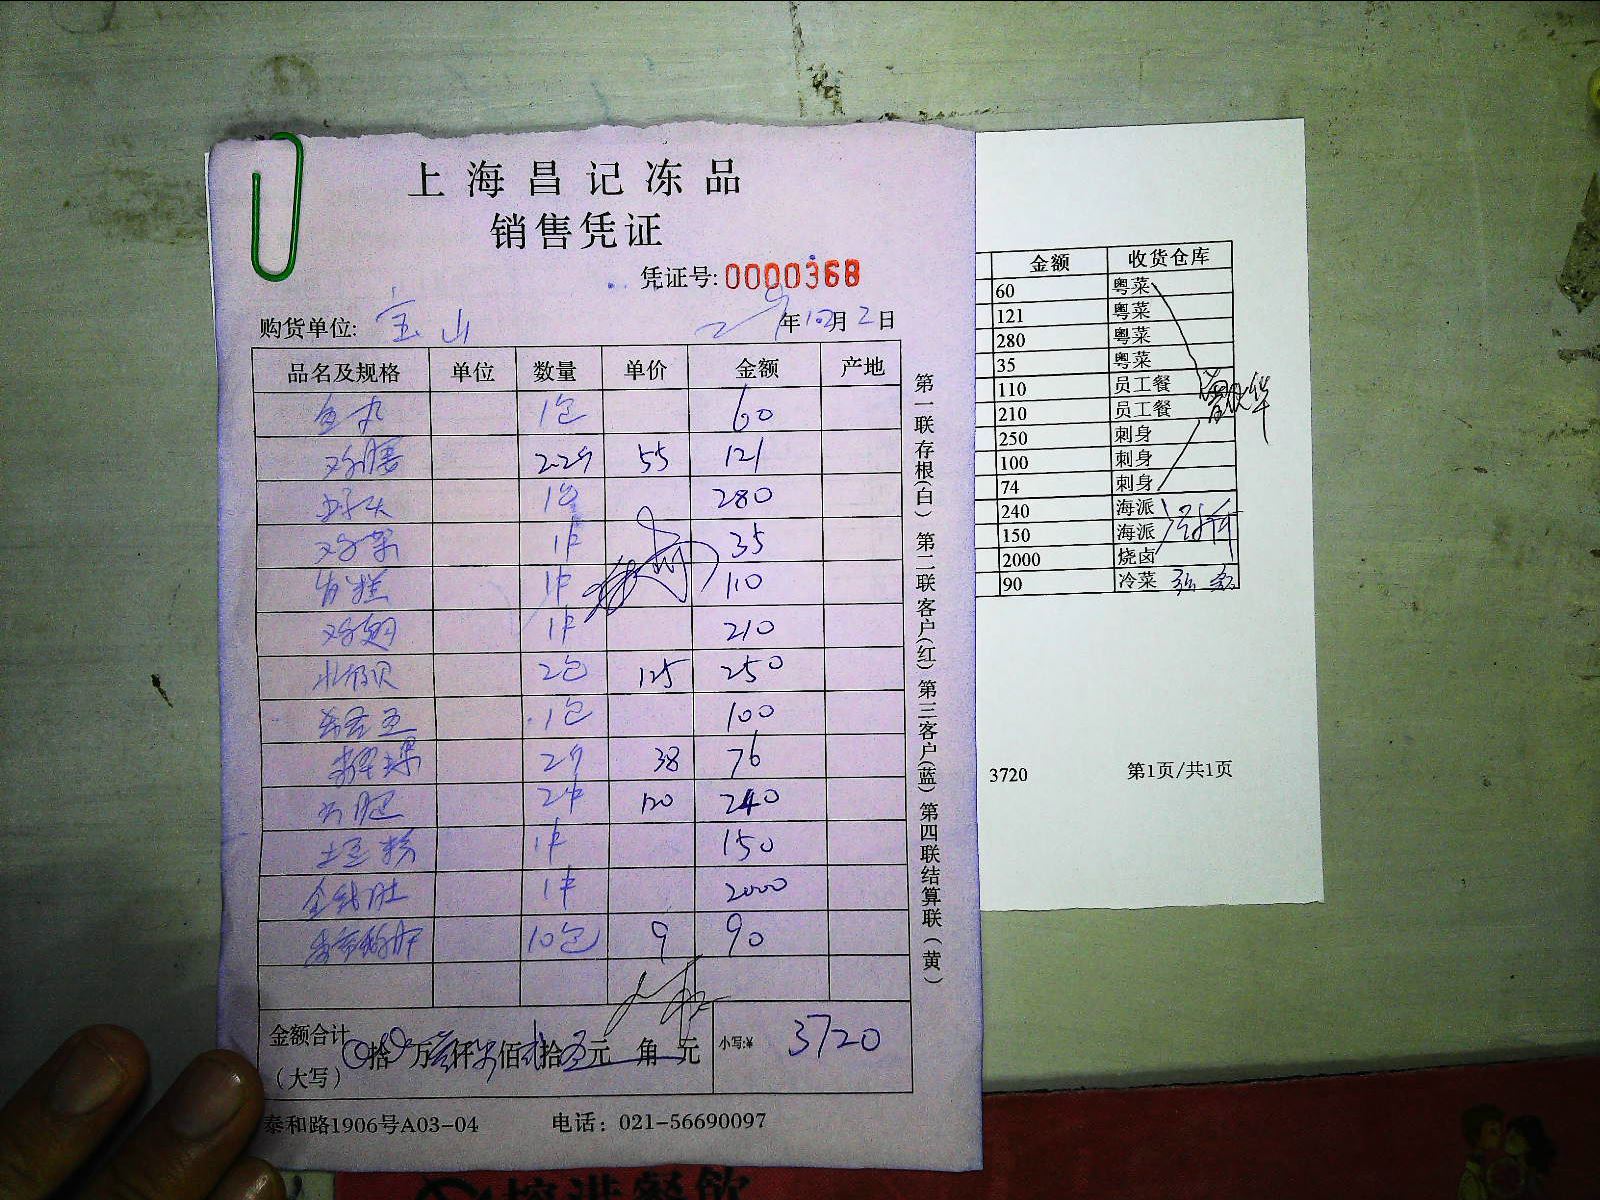 上海昌记冻品
销售凭证
凭证号: 0000368
购货单位: 宝山 年10月2日
品名及规格 单位 数量 单价 金额 产地
鱼丸 1包 60
55 121
1包 280
鸡架 1件 35
1件 110
鸡翅 1件 210
北极贝 2包 125 250
1包 100
38 76
2件 120 240
土豆粉 1件 150
金钱肚 1件 2000
10包 9 90
金额合计 拾 万 仟 佰 拾 元 角 元 小写:¥ 3720
（大写）
泰和路1906号A03-04 电话：021-56690097
第一联存根(白) 第二联客户(红) 第三客户(蓝) 第四联结算联(黄)
金额 收货仓库
60 粤菜
121 粤菜
280 粤菜
35 粤菜
110 员工餐
210 员工餐
250 刺身
100 刺身
74 刺身
240 海派
150 海派
2000 烧卤
90 冷菜
3720 第1页/共1页